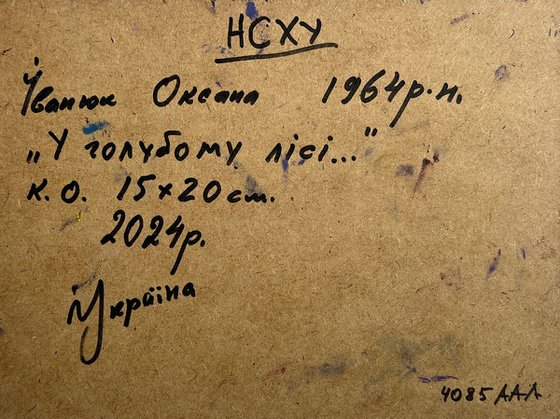 НСХУ
Іванюк Оксана 1964р.н.
„У голубому лісі..."
к.о. 15x20см.
2024р.
Україна
4085 ДАЛ